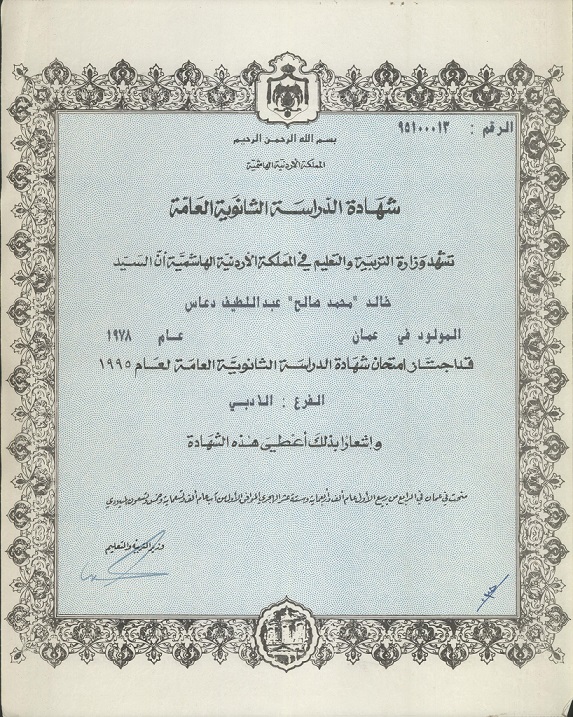 الرقم : ٩٥١٠٠٠١٣
بسم الله الرحمن الرحيم
المملكة الأردنية الهاشمية
شهادة الدراسة الثانوية العامة
تشهد وزارة التربية والتعليم في المملكة الأردنية الهاشمية أن السيد
خالد "محمد صالح" عبداللطيف دعاس
المولود في عمان عام ١٩٧٨
قد اجتاز امتحان شهادة الدراسة الثانوية العامة لعام ١٩٩٥
الفرع : الادبي
وإشعارا بذلك أعطي هذه الشهادة
منحت في عمان في الرابع من ربيع الأول عام ألف وأربعماية وستة عشر الهجري الموافق الأول من آب عام ألف وتسعماية وخمس وتسعون الميلادي
وزير التربية والتعليم